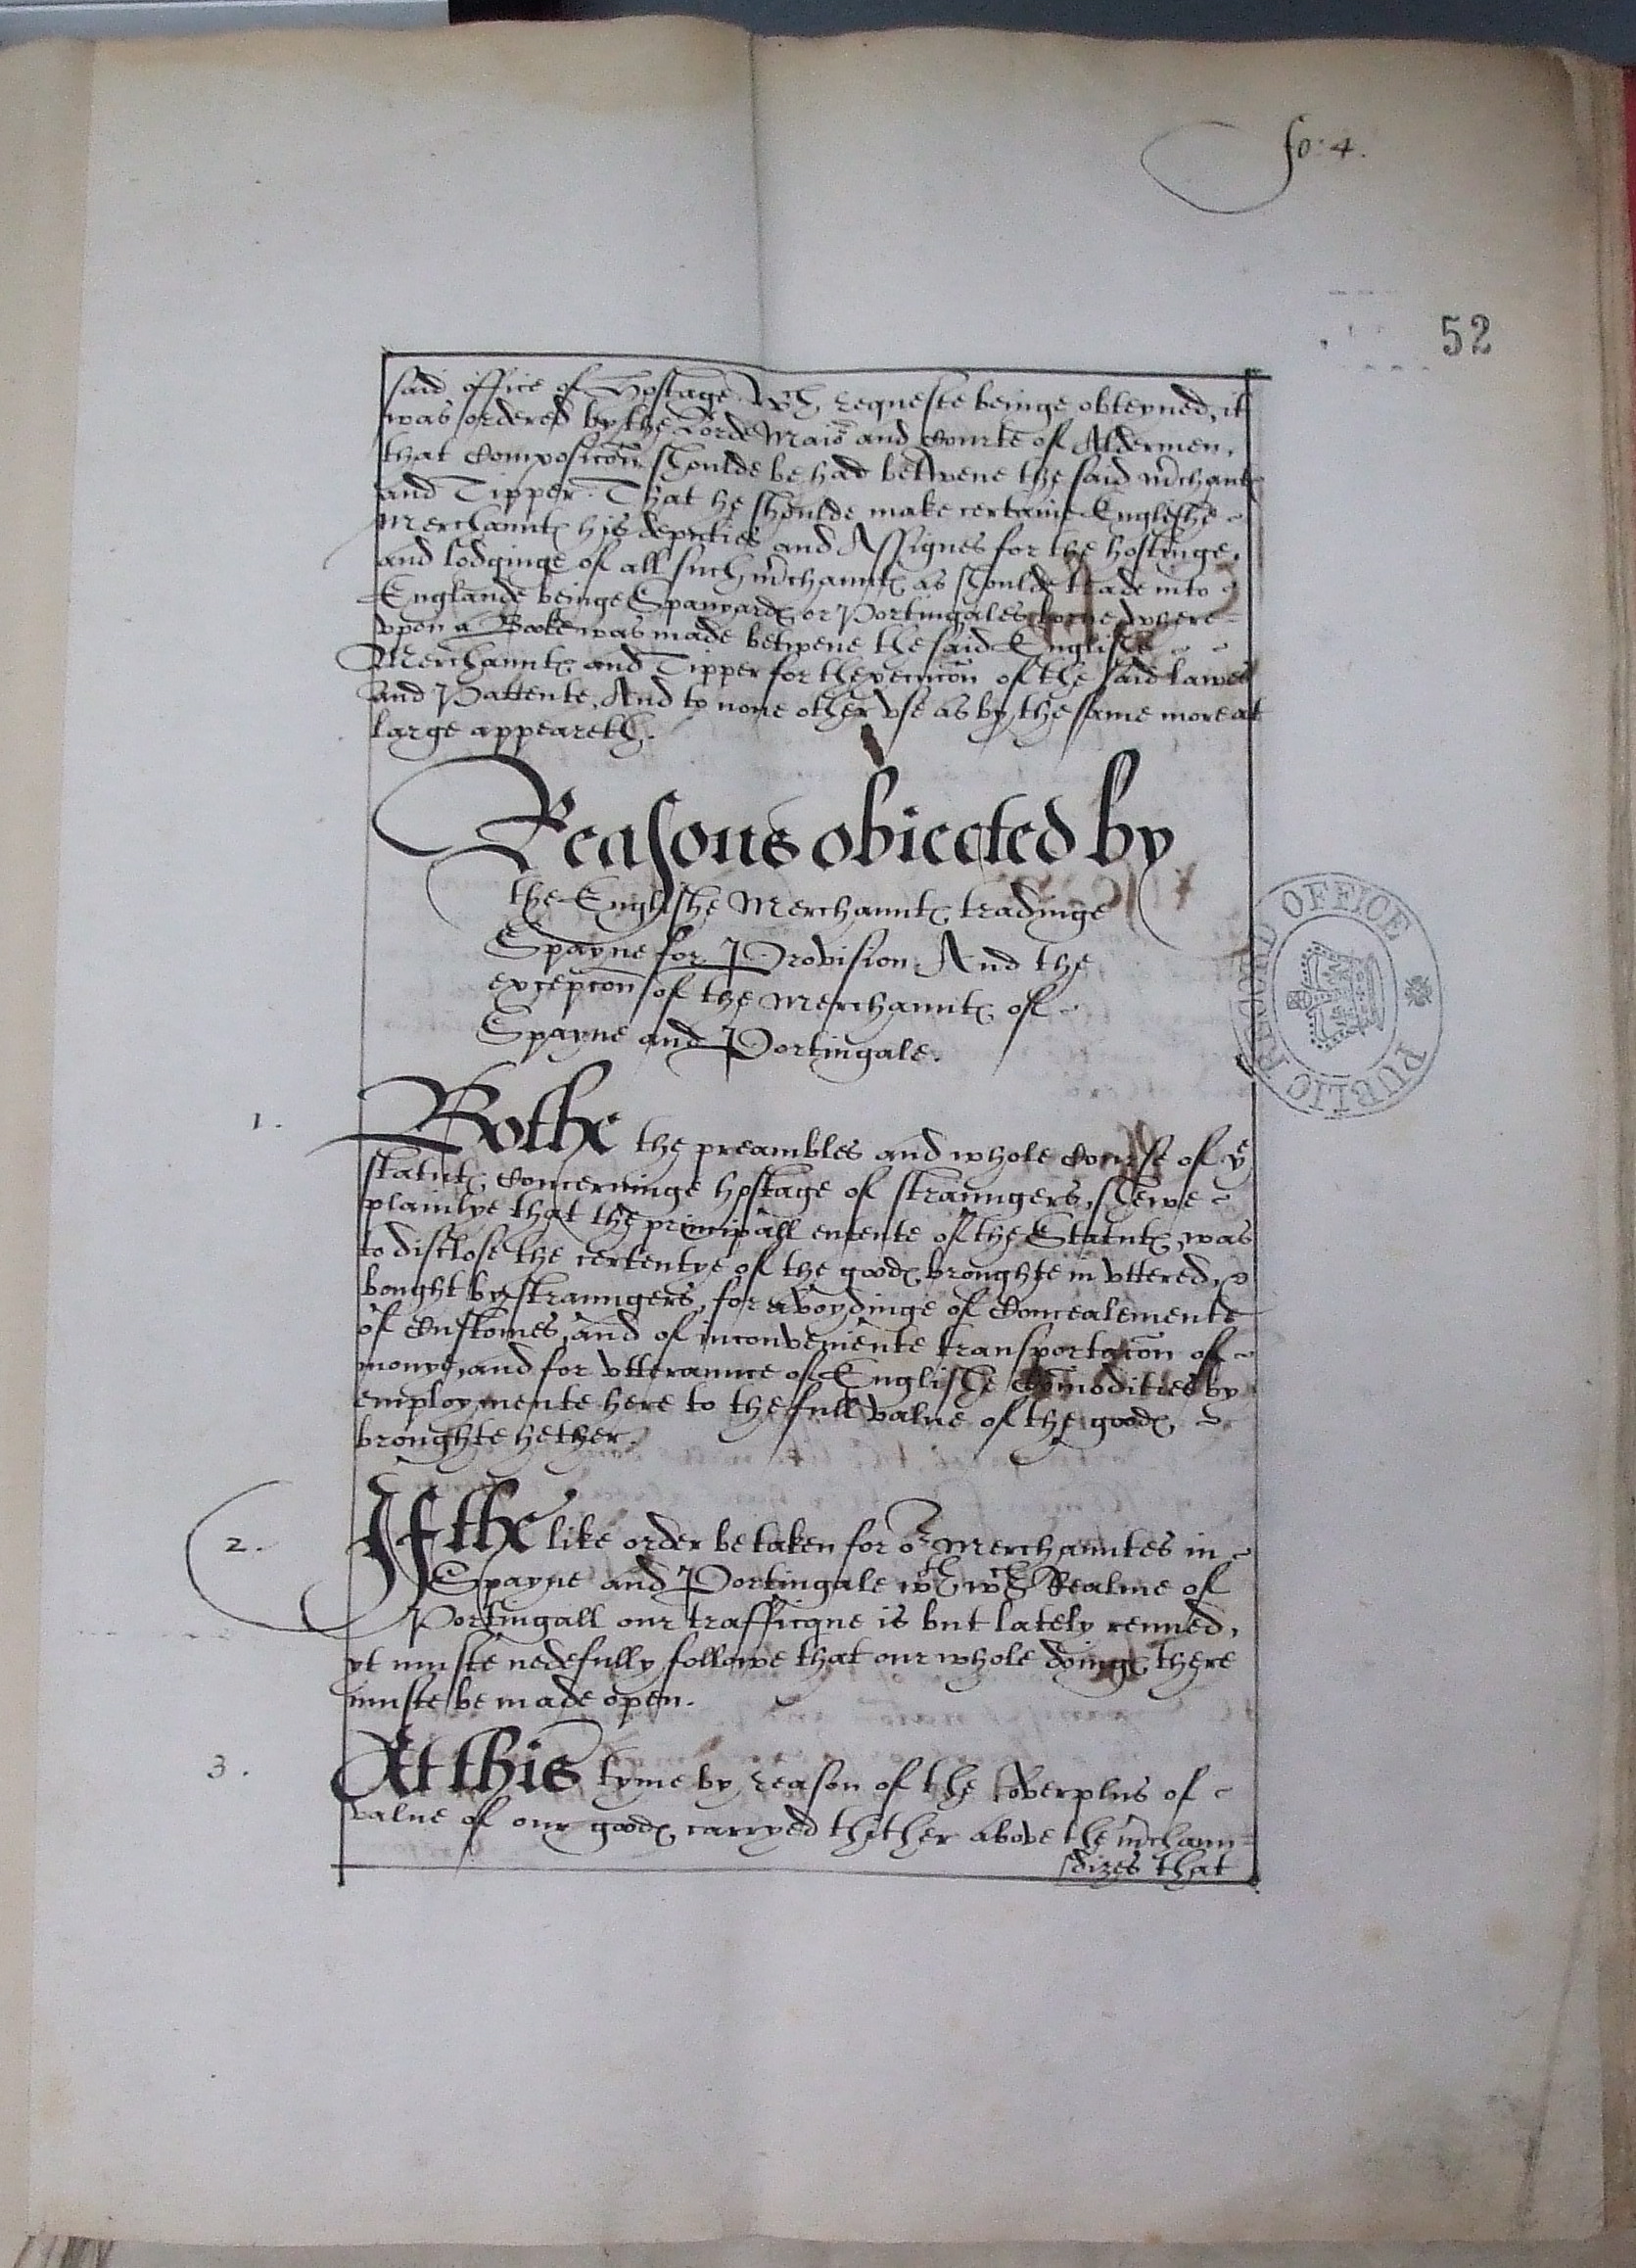 fo: 4.
52
said office of Hostage. Wch requeste beinge obteyned, it
was ordered by the Lorde Maior and Courte of Aldermen,
that Composicōn shoulde be had betwene the said m̄chantꝭ
and Tipper. That he shoulde make certaine Englishe
Merchauntꝭ his deputies and Assignes for the hostinge,
and lodginge of all such m̄chauntꝭ as shoulde trade into
Englande beinge Spanyardꝭ or Portingales borne, where=
vpon a Booke was made betwene the said Englishe
Merchauntꝭ and Tipper for thexecucōn of the said lawes
and Pattente, And to none other vse as by the same more at
large appeareth.
Reasons obiected by
the Englishe Merchauntꝭ tradinge
Spayne for Provision. And the
excepcōn of the Merchauntꝭ of
Spayne and Portingale.
1. Bothe the preambles and whole course of ye
statutꝭ concerninge hostage of straungers, shewe
plainlye that the principall entente of the Statutꝭ, was
to disclose the certentye of the goodꝭ broughte in vttered, &
bought by straungers, for avoydinge of Concealemente
of Customes, and of inconveniente transportacōn of
monye, and for vtteraunce of Englishe Com̄odities by
employmente here to the full value of the goodꝭ
broughte hether.
2. If the like order be taken for or Merchauntes in
Spayne and Portingale wth wch Realme of
Portingall our trafficque is but lately renued,
yt muste nedefully followe that our whole doingꝭ there
muste be made open.
3. At this tyme by reason of the overplus of
value of our goodꝭ carryed thither above the m̄chaun=
dizes that
PUBLIC RECORD OFFICE